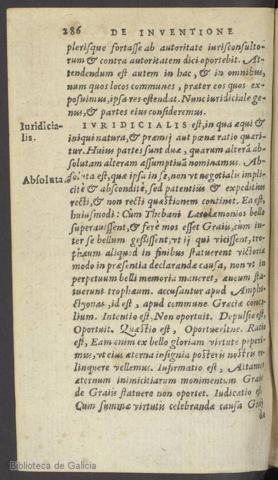 286 DE INVENTIONE
plerisque fortasse ab autoritate iurisconsulto-
rum & contra autoritatem dici oportebit. At-
tendendum est autem in hac, & in omnibus,
num quos locos communes, præter eos quos ex-
posuimus, ipsa res ostendat. Nunc iuridiciale ge-
nus, & partes eius consideremus.
Iuridicia-
lis.
IVRIDICIALIS est, in qua æqui &
iniqui natura, & præmij aut pœnæ ratio quæri-
tur. Huius partes sunt duæ, quarum alterã ab-
solutam alteram assumptiuã nominamus. Ab-
Absoluta.
soluta est, quæ ipsa in se, non vt negotialis impli-
citè & absconditè, sed patentius & expeditius
recti, & non recti quæstionem continet. Ea est,
huiusmodi: Cum Thebani Lacedæmonios bello
superauissent, & ferè mos esset Graiis, cum in-
ter se bellum gessissent, vt ij qui vicissent, tro-
phæum aliquod in finibus statuerent victoriæ
modo in præsentia declarandæ causa, non vt in
perpetuum belli memoria maneret, æneum sta-
tuerunt trophæum. accusantur apud Amphi-
ctyonas, id est, apud commune Græciæ conci-
lium. Intentio est, Non oportuit. Depulsio est,
Oportuit. Quæstio est, Oportueritne. Ratio
est, Eam enim ex bello gloriam virtute peperi-
mus, vt eius æterna insignia posteris nostris re-
linquere vellemus. Infirmatio est, Attamen
æternum inimicitiarum monimentum Graios
de Graiis statuere non oportet. Iudicatio est,
Cum summæ virtutis celebrandæ causa Graij
Biblioteca de Galicia